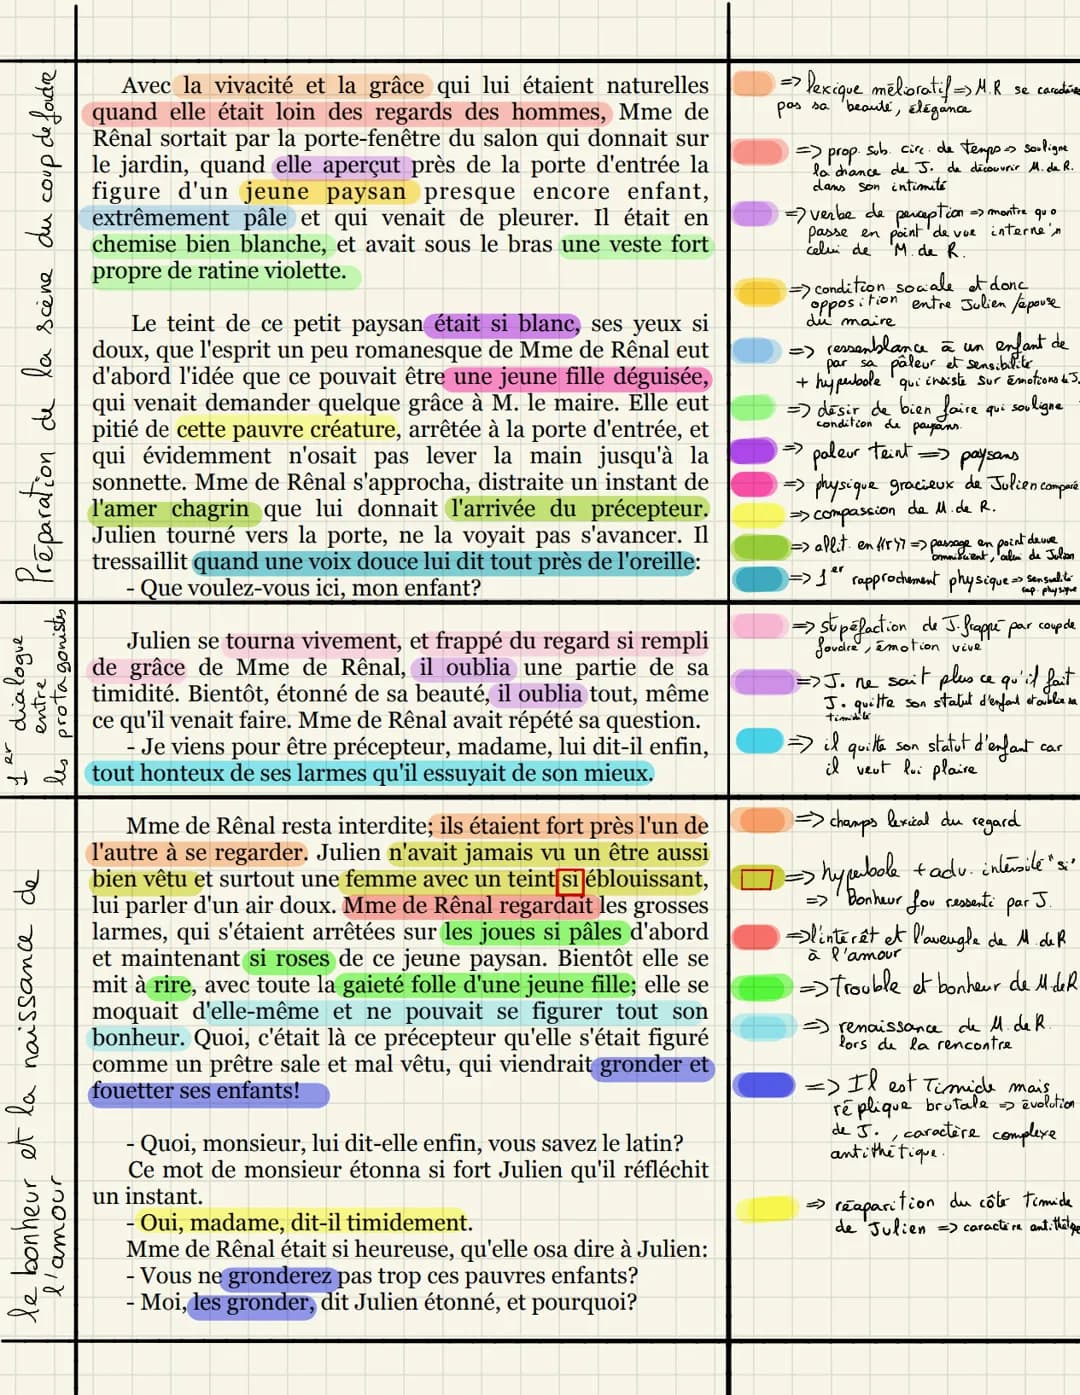 Préparation de la scène du coup de foudre
Avec la vivacité et la grâce qui lui étaient naturelles
quand elle était loin des regards des hommes, Mme de
Rênal sortait par la porte-fenêtre du salon qui donnait sur
le jardin, quand elle aperçut près de la porte d'entrée la
figure d'un jeune paysan presque encore enfant,
extrêmement pâle et qui venait de pleurer. Il était en
chemise bien blanche, et avait sous le bras une veste fort
propre de ratine violette.
Le teint de ce petit paysan était si blanc, ses yeux si
doux, que l'esprit un peu romanesque de Mme de Rênal eut
d'abord l'idée que ce pouvait être une jeune fille déguisée,
qui venait demander quelque grâce à M. le maire. Elle eut
pitié de cette pauvre créature, arrêtée à la porte d'entrée, et
qui évidemment n'osait pas lever la main jusqu'à la
sonnette. Mme de Rênal s'approcha, distraite un instant de
l'amer chagrin que lui donnait l'arrivée du précepteur.
Julien tourné vers la porte, ne la voyait pas s'avancer. Il
tressaillit quand une voix douce lui dit tout près de l'oreille:
- Que voulez-vous ici, mon enfant?
=> lexique mélioratif => M.R se caractérise
pas sa beauté, élégance
=> prop. sub. circ. de temps => souligne
la chance de J. de découvrir M. de R.
dans son intimité
=> verbe de perception => montre qu'o
passe en point de vue interne,
celui de M. de R.
=> condition sociale et donc
opposition entre Julien / épouse
du maire
=> ressemblance à un enfant de
par sa pâleur et sensibilité
+ hyperbole qui insiste sur émotions de J.
=> désir de bien faire qui souligne
condition de paysans.
=> paleur teint => paysans
=> physique gracieux de Julien comparé
=> compassion de M. de R.
=> allit. en "r" => passage en point de vue
omniscient, celui de Julien
=> 1er rapprochement physique => sensualité
cap. physique
1er dialogue
entre
les protagonistes
Julien se tourna vivement, et frappé du regard si rempli
de grâce de Mme de Rênal, il oublia une partie de sa
timidité. Bientôt, étonné de sa beauté, il oublia tout, même
ce qu'il venait faire. Mme de Rênal avait répété sa question.
- Je viens pour être précepteur, madame, lui dit-il enfin,
tout honteux de ses larmes qu'il essuyait de son mieux.
=> stupéfaction de J. frappé par coup de
foudre, émotion vive
=> J. ne sait plus ce qu'il fait
J. quitte son statut d'enfant et oublie sa
timidité
=> il quitte son statut d'enfant car
il veut lui plaire
le bonheur et la naissance de
l'amour
Mme de Rênal resta interdite; ils étaient fort près l'un de
l'autre à se regarder. Julien n'avait jamais vu un être aussi
bien vêtu et surtout une femme avec un teint si éblouissant,
lui parler d'un air doux. Mme de Rênal regardait les grosses
larmes, qui s'étaient arrêtées sur les joues si pâles d'abord
et maintenant si roses de ce jeune paysan. Bientôt elle se
mit à rire, avec toute la gaieté folle d'une jeune fille; elle se
moquait d'elle-même et ne pouvait se figurer tout son
bonheur. Quoi, c'était là ce précepteur qu'elle s'était figuré
comme un prêtre sale et mal vêtu, qui viendrait gronder et
fouetter ses enfants!
- Quoi, monsieur, lui dit-elle enfin, vous savez le latin?
Ce mot de monsieur étonna si fort Julien qu'il réfléchit
un instant.
- Oui, madame, dit-il timidement.
Mme de Rênal était si heureuse, qu'elle osa dire à Julien:
- Vous ne gronderez pas trop ces pauvres enfants?
- Moi, les gronder, dit Julien étonné, et pourquoi?
=> champs lexical du regard
=> hyperbole + adv. intensité "si"
=> Bonheur fou ressenti par J.
=> l'intérêt et l'aveugle de M. de R
à l'amour
=> Trouble et bonheur de M. de R
=> renaissance de M. de R.
lors de la rencontre
=> Il est Timide mais
réplique brutale => évolution
de J., caractère complexe
antithétique.
=> réaparition du côté timide
de Julien => caractère antithétique